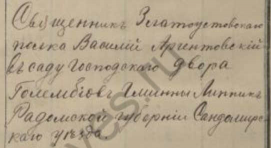 Священникъ Златоустовскаго
полка Василій Аргентовскій
въ саду Господскаго двора
Голембіовъ Гмины Липникъ
Радомской губерніи Сандомир-
скаго уѣзда